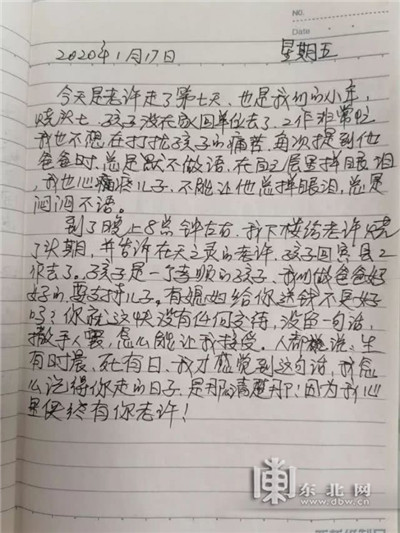 NO.
Date
2020年1月17日 星期五
今天是老许走了第七天、也是我们的小年,
烧头七、孩子没在家回单位去了、工作非常忙
我也不想在打扰孩子的痛苦、每次提到他
爸爸时、总是默不做语、在房屋里掉眼泪
,我也心痛儿子、不能让他总掉眼泪,总是
闷闷不语。
到了晚上8点钟左右,我下楼给老许烧
了头期,并告诉在天之灵的老许,孩子回宾县工
作去了。孩子是一个孝顺的孩子、我们做爸爸好
好的,要支持儿子。有媳妇给你送钱不是好
吗?你就这快没有任何交待,没留一句话,
撒手人寰,怎么能让我接受。人都说、生
有时晨、死有日、我才感觉到这句话,我怎
么记得你走的日子、是那清楚那!因为我心
里便终有你老许!
东北网
www.dbw.cn